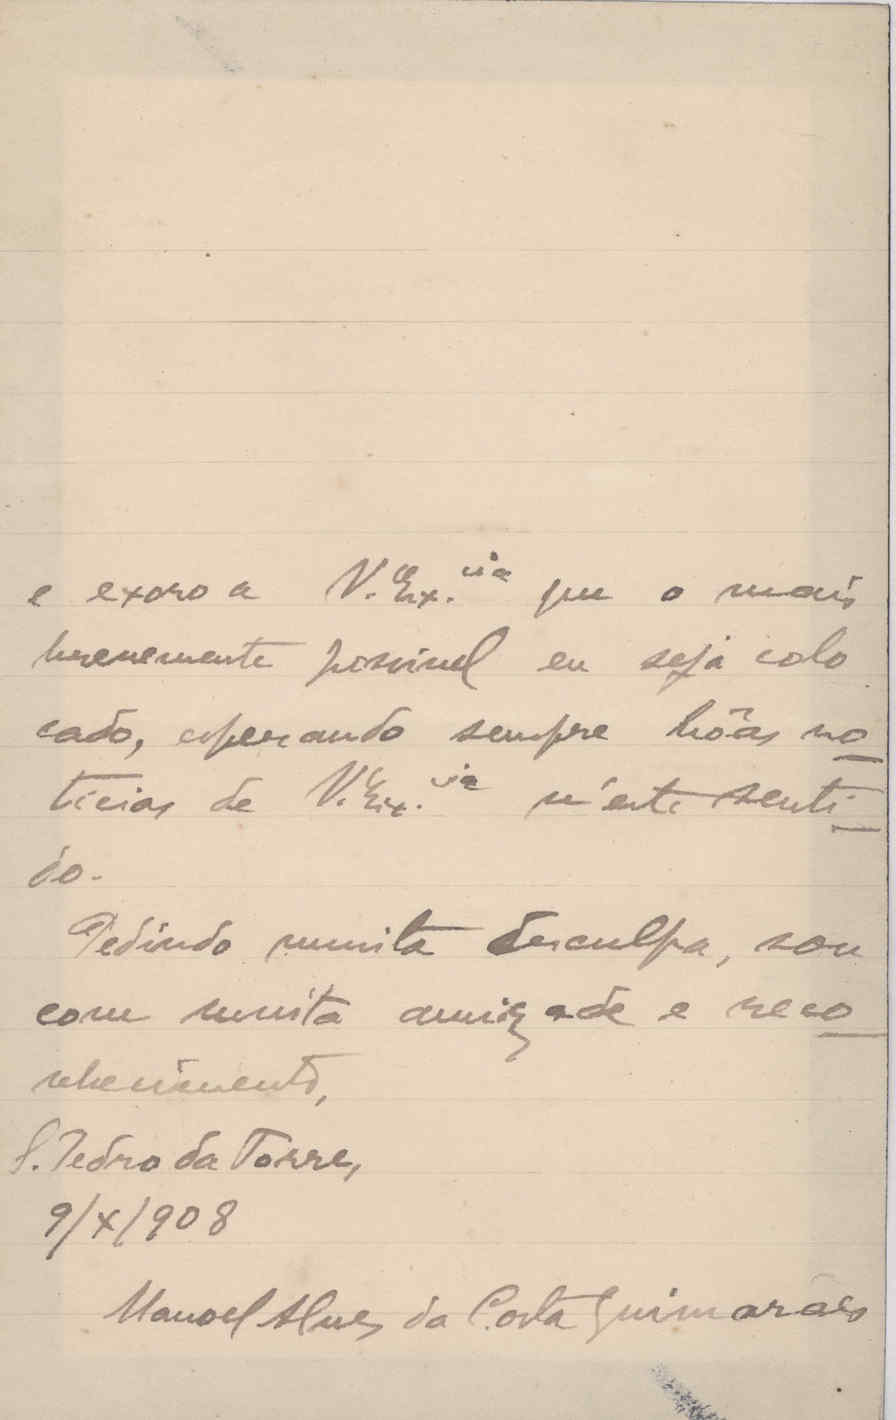 e exoro a V. Ex.cia que o mais
brevemente possivel eu seja colo
cado, esperando sempre bôas no
ticias de V. Ex.cia n'este senti
do.
Pedindo muita desculpa, sou
com muita amizade e reco
nhecimento,
S. Pedro da Torre,
9/X/908
Manoel Alves da Costa Guimarães